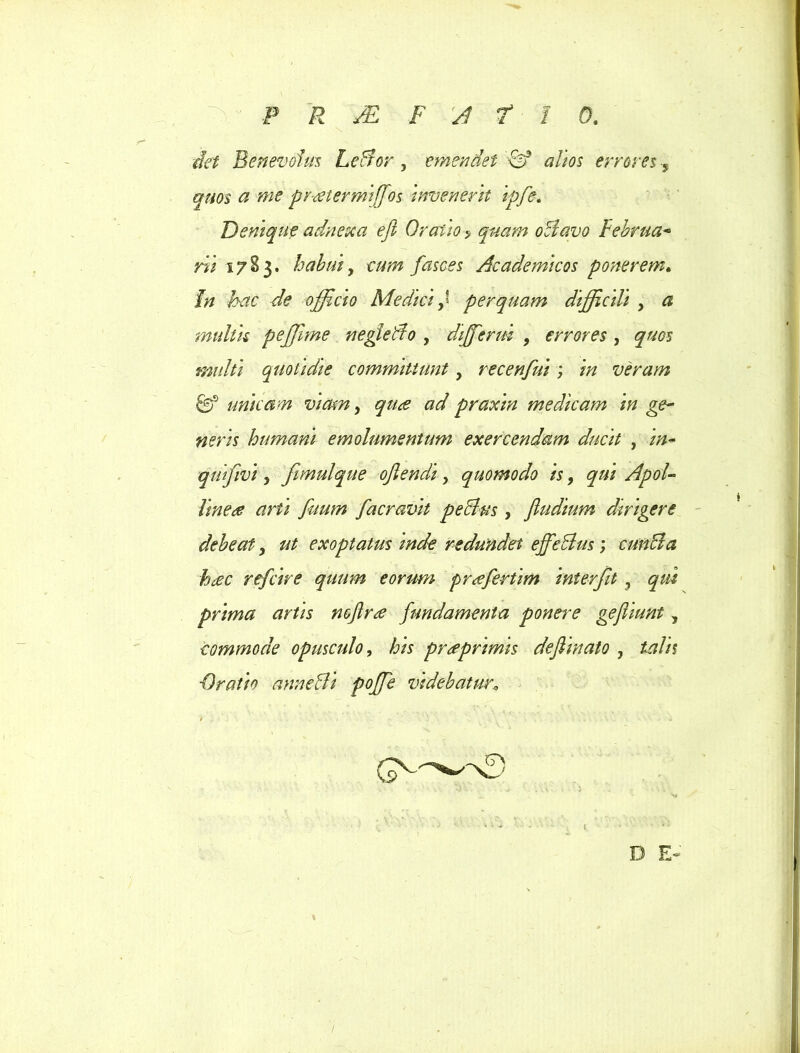 PRÆFATIO.
det Benevolus Leƈtor, emendet & alios errores,
quos a me prætermiſſos invenerit ipſe.
Denique adnexa eſt Oratio, quam oƈtavo Februa-
rii 1783. habui, cum fasces Academicos ponerem.
In hac de officio Medici, perquam difficili, a
multis peſſime negleƈto, differui, errores, quos
multi quotidie committunt, recenſui; in veram
& unicam viam, quæ ad praxin medicam in ge-
neris humani emolumentum exercendam ducit, in-
quiſivi, ſimulque oſtendi, quomodo is, qui Apol-
lineæ arti ſuum ſacravit peƈtus, ſtudium dirigere
debeat, ut exoptatus inde redundet effeƈtus; cunƈta
hæc reſcire quum eorum præſertim interſit, qui
prima artis noſtræ fundamenta ponere geſtiunt,
commode opusculo, his præprimis deſtinato, talis
Oratio anneƈti poſſe videbatur.
DE-